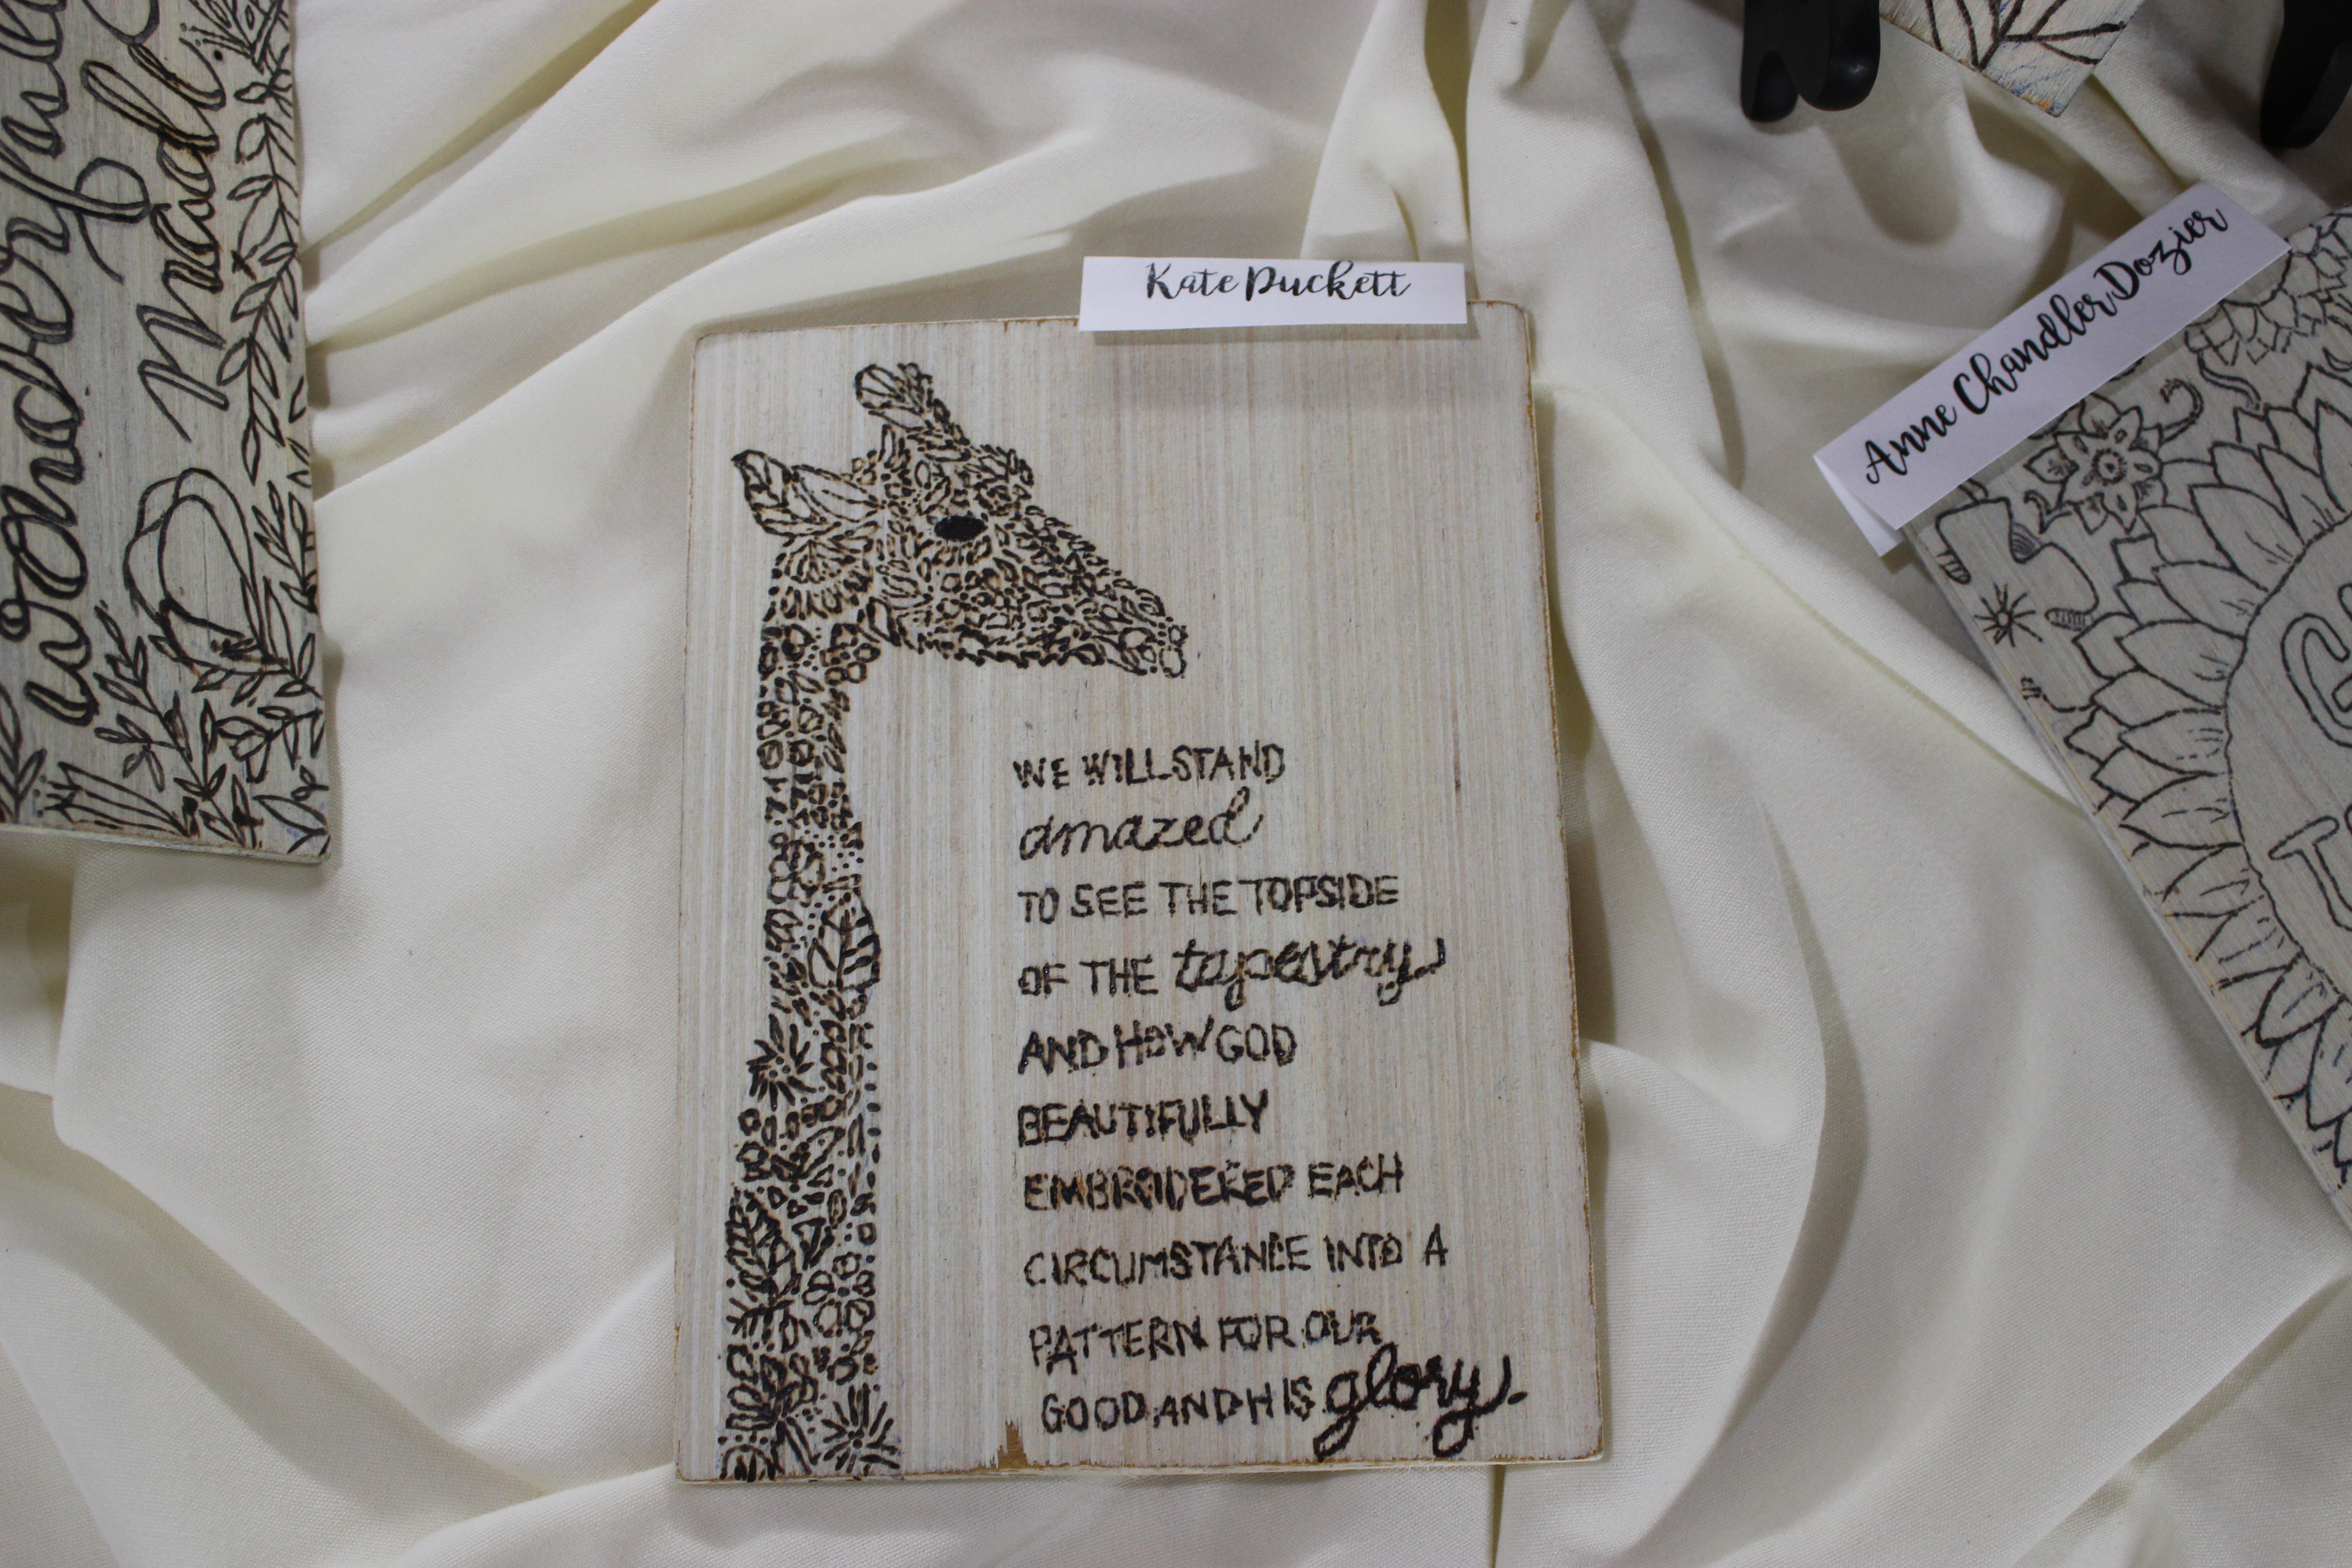 wonderfully
Made.
Kate Puckett
WE WILL STAND
amazed
TO SEE THE TOPSIDE
OF THE tapestry
AND HOW GOD
BEAUTIFULLY
EMBROIDERED EACH
CIRCUMSTANCE INTO A
PATTERN FOR OUR
GOOD AND HIS glory.
Anne Chandler Dozier